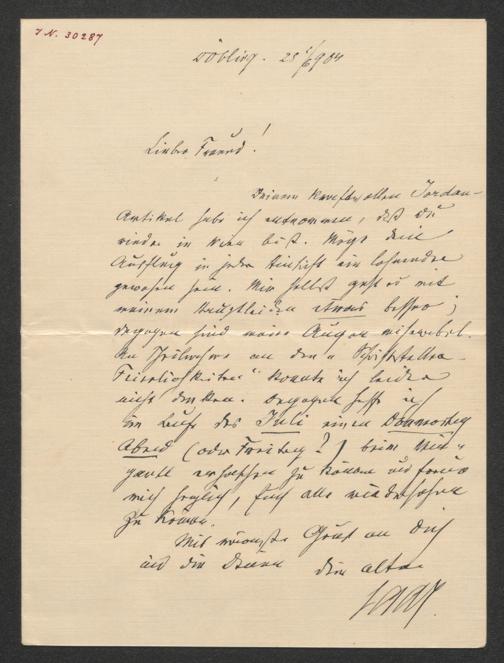 I. N. 30287
Döbling. 28/6 904
Lieber Freund!
Deinem kraftvollen Jordan-
Artikel habe ich entnommen, daß Du
wieder in Wien bist. Möge dein
Ausflug in jeder Hinsicht ein lohnender
gewesen sein. Mir selbst geht es mit
meinem Hauptleiden etwas besser;
dagegen sind meine Augen miserabel.
An Theilnahme an den „Schriftsteller-
Feierlichkeiten" konnte ich leider
nicht denken. Dagegen hoffe ich
im Laufe des Juli einen Donnerstag
Abend (oder Freitag?) beim
erscheinen zu können und freue
mich herzlich, Euch alle wiedersehen
zu können.
Mit wärmstem Gruß an Dich
und die Deinen Dein alter
Saar.